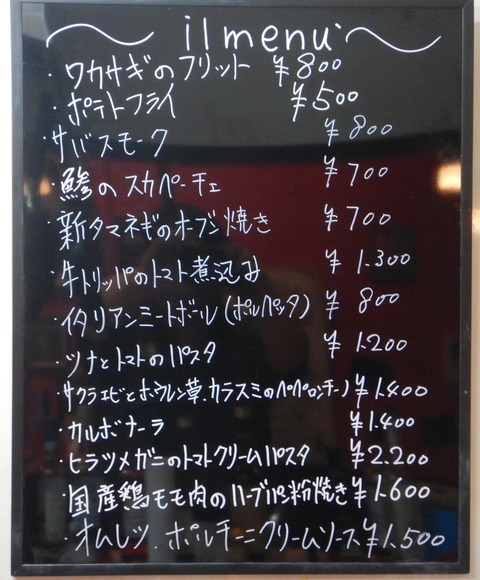 il menu
・ワカサギのフリット ¥800
・ポテトフライ ¥500
・サバスモーク ¥800
・鯵のスカペーチェ ¥700
・新タマネギのオーブン焼き ¥700
・牛トリッパのトマト煮込み ¥1.300
・イタリアンミートボール(ポルペッタ) ¥800
・ツナとトマトのパスタ ¥1.200
・サクラエビとホウレン草.カラスミのペペロンチーノ ¥1.400
・カルボナーラ ¥1.400
・ヒラツメガニのトマトクリームパスタ ¥2.200
・国産鶏モモ肉のハーブパン粉焼き ¥1.600
・オムレツ.ポルチーニクリームソース ¥1.500